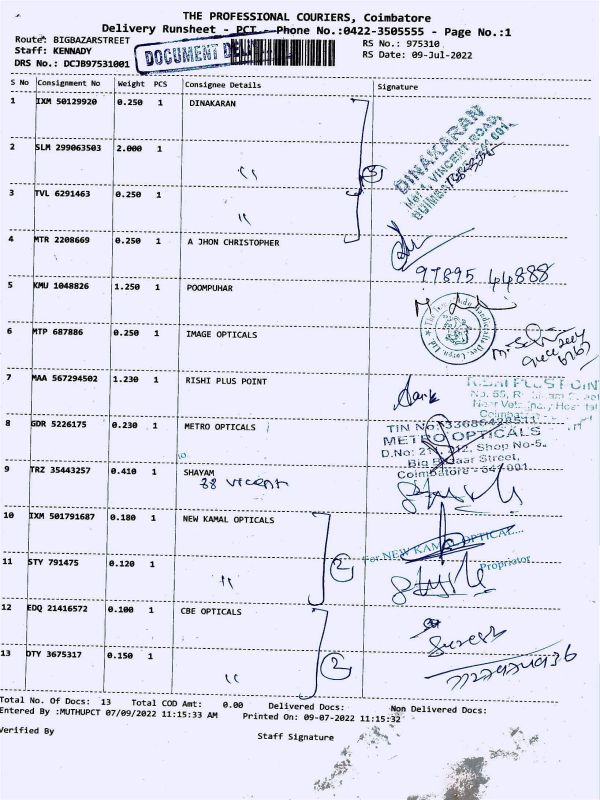 THE PROFESSIONAL COURIERS, Coimbatore
Delivery Runsheet - PCT - Phone No.:0422-3505555 - Page No.:1
Route: BIGBAZARSTREET RS No.: 975310
Staff: KENNADY RS Date: 09-Jul-2022
DRS No.: DCJB97531001 DOCUMENT
S No Consignment No Weight PCS Consignee Details Signature
1 IXM 50129920 0.250 1 DINAKARAN
DINAKARAN
VINCENT ROAD
2 SLM 299063503 2.000 1 "
3
3 TVL 6291463 0.250 1 "
4 MTR 2208669 0.250 1 A JHON CHRISTOPHER
97895 44888
5 KMU 1048826 1.250 1 POOMPUHAR
6 MTP 687886 0.250 1 IMAGE OPTICALS
7 MAA 567294502 1.230 1 RISHI PLUS POINT
No. 55,
8 GDR 5226175 0.230 1 METRO OPTICALS
TIN No:
METRO OPTICALS
D.No: 211, 212, Shop No-5.
Big Bazaar Street,
Coimbatore - 641001.
9 TRZ 35443257 0.410 1 SHAYAM
38 vicent
10 IXM 501791687 0.180 1 NEW KAMAL OPTICALS
For NEW KAMAL OPTICAL...
Proprietor
2
11 STY 791475 0.120 1 "
12 EDQ 21416572 0.100 1 CBE OPTICALS
Suresh
2
13 DTY 3675317 0.150 1 "
Total No. Of Docs: 13 Total COD Amt: 0.00 Delivered Docs: Non Delivered Docs:
Entered By :MUTHUPCT 07/09/2022 11:15:33 AM Printed On: 09-07-2022 11:15:32
Verified By Staff Signature